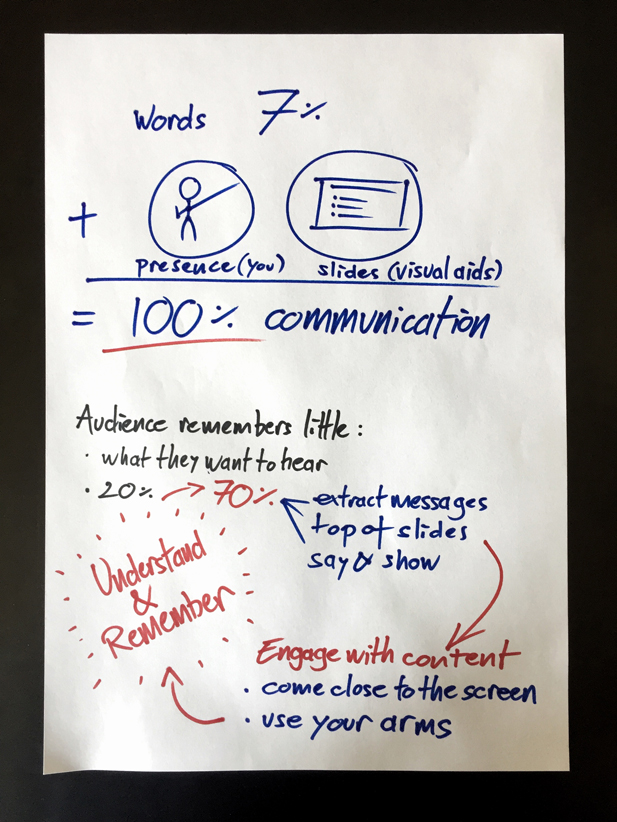 Words 7%
+
presence (you) slides (visual aids)
= 100% communication
Audience remembers little:
· what they want to hear
· 20% → 70%
extract messages
top of slides
say & show
Understand
&
Remember
Engage with content
· come close to the screen
· use your arms